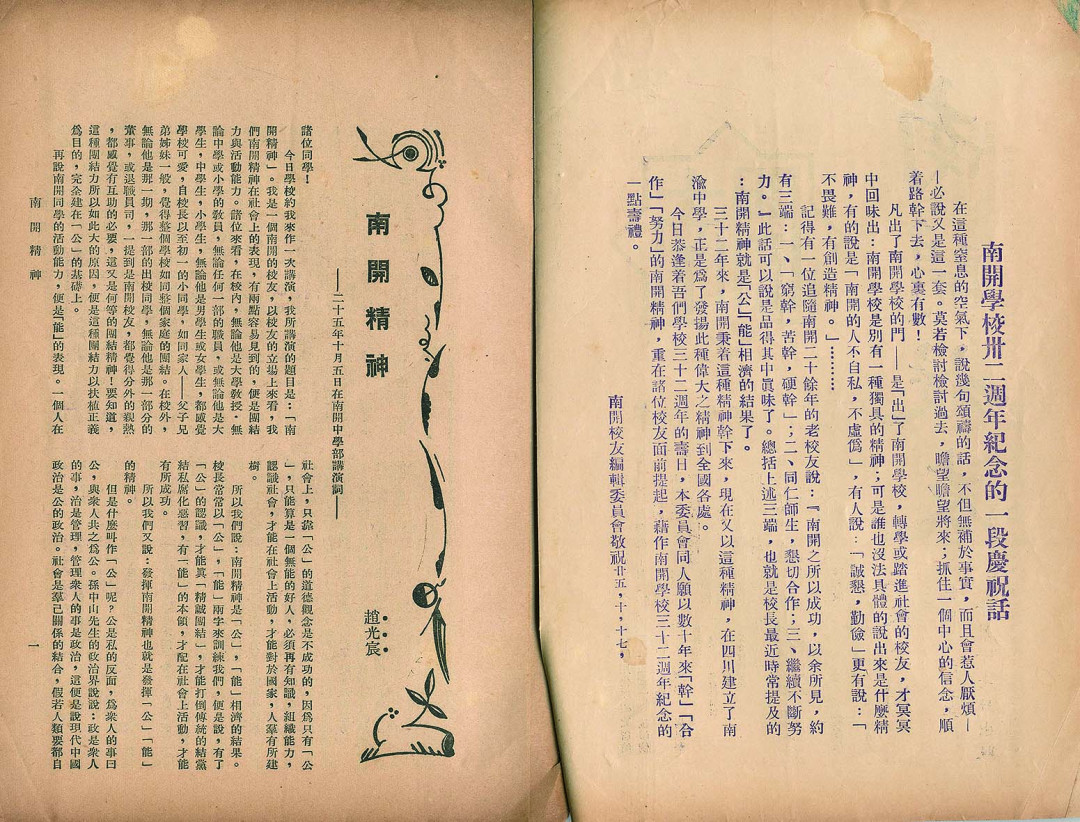 南開學校卅二週年紀念的一段慶祝話
在這種窒息的空氣下，說幾句頌禱的話，不但無補於事實，而且會惹人厭煩—
—必說又是這一套。莫若檢討檢討過去，瞻望瞻望將來；抓住一個中心的信念，順
着路幹下去，心裏有數！
凡出了南開學校的門——是「出」了南開學校，轉學或踏進社會的校友，才冥冥
中回味出：南開學校是別有一種獨具的精神；可是誰也沒法具體的說出來是什麼精
神，有的說是「南開的人不自私，不虛僞」，有人說：「誠懇，勤儉」更有說：「
不畏難，有創造精神。」………
記得有一位追隨南開二十餘年的老校友說：『南開之所以成功，以余所見，約
有三端：一、「窮幹，苦幹，硬幹」；二、同仁師生，懇切合作；三、繼續不斷努
力。』此話可以說是品得其中眞味了。總括上述三端，也就是校長最近時常提及的
：南開精神就是「公」「能」相濟的結果了。
三十二年來，南開秉着這種精神幹下來，現在又以這種精神，在四川建立了南
渝中學，正是爲了發揚此種偉大之精神到全國各處。
今日恭逢着吾們學校三十二週年的壽日，本委員會同人願以數十年來「幹」「合
作」「努力」的南開精神，重在諸位校友面前提起，藉作南開學校三十二週年紀念的
一點壽禮。
南開校友編輯委員會敬祝廿五，十，十七，
南開精神
——二十五年十月五日在南開中學部講演詞——
趙光宸
諸位同學！
今日學校約我來作一次講演，我所講演的題目是：「南
開精神」。我是一個南開的校友，以校友的立場上來看，我
們南開精神在社會上的表現，有兩點容易見到的，便是團結
力與活動能力。諸位來看，在校內，無論他是大學教授；無
論中學或小學的教員，無論任何一部的職員，或無論他是大
學生，中學生，小學生，無論他是男學生或女學生，都感覺
學校可愛，自校長以至初一的小同學，如同家人——父子兄
弟姊妹一般，覺得整個學校如同整個家庭的團結。在校外，
無論他是那一期，那一部的出校同學，無論他是那一部分的
董事，或退職員司，一提到是南開校友，都覺得分外的親熱
，都感覺有互助的必要，這又是何等的團結精神！要知道，
這種團結力所以如此大的原因，便是這種團結力以扶植正義
爲目的，完全建在「公」的基礎上。
再說南開同學的活動能力，便是「能」的表現。一個人在
社會上，只靠「公」的道德觀念是不成功的，因爲只有「公
」，只能算是一個無能的好人，必須再有知識，組織能力，
認識社會，才能在社會上活動，才能對於國家，人羣有所建
樹。
所以我們說：南開精神是「公」，「能」相濟的結果。
校長常常以「公」，「能」兩字來訓練我們，便是說，有了
「公」的認識，才能眞「精誠團結」，才能打倒傳統的結黨
結私腐化惡習，有「能」的本領，才配在社會上活動，才能
有所成功。
所以我們又說：發揮南開精神也就是發揮「公」「能」
的精神。
但是什麼叫作「公」呢？公是私的反面，爲衆人的事曰
公，與衆人共之爲公。孫中山先生的政治界說說：政是衆人
的事，治是管理，管理衆人的事是政治，這便是說現代中國
政治是公的政治。社會是羣己關係的結合，假若人類要都自
南開精神
一